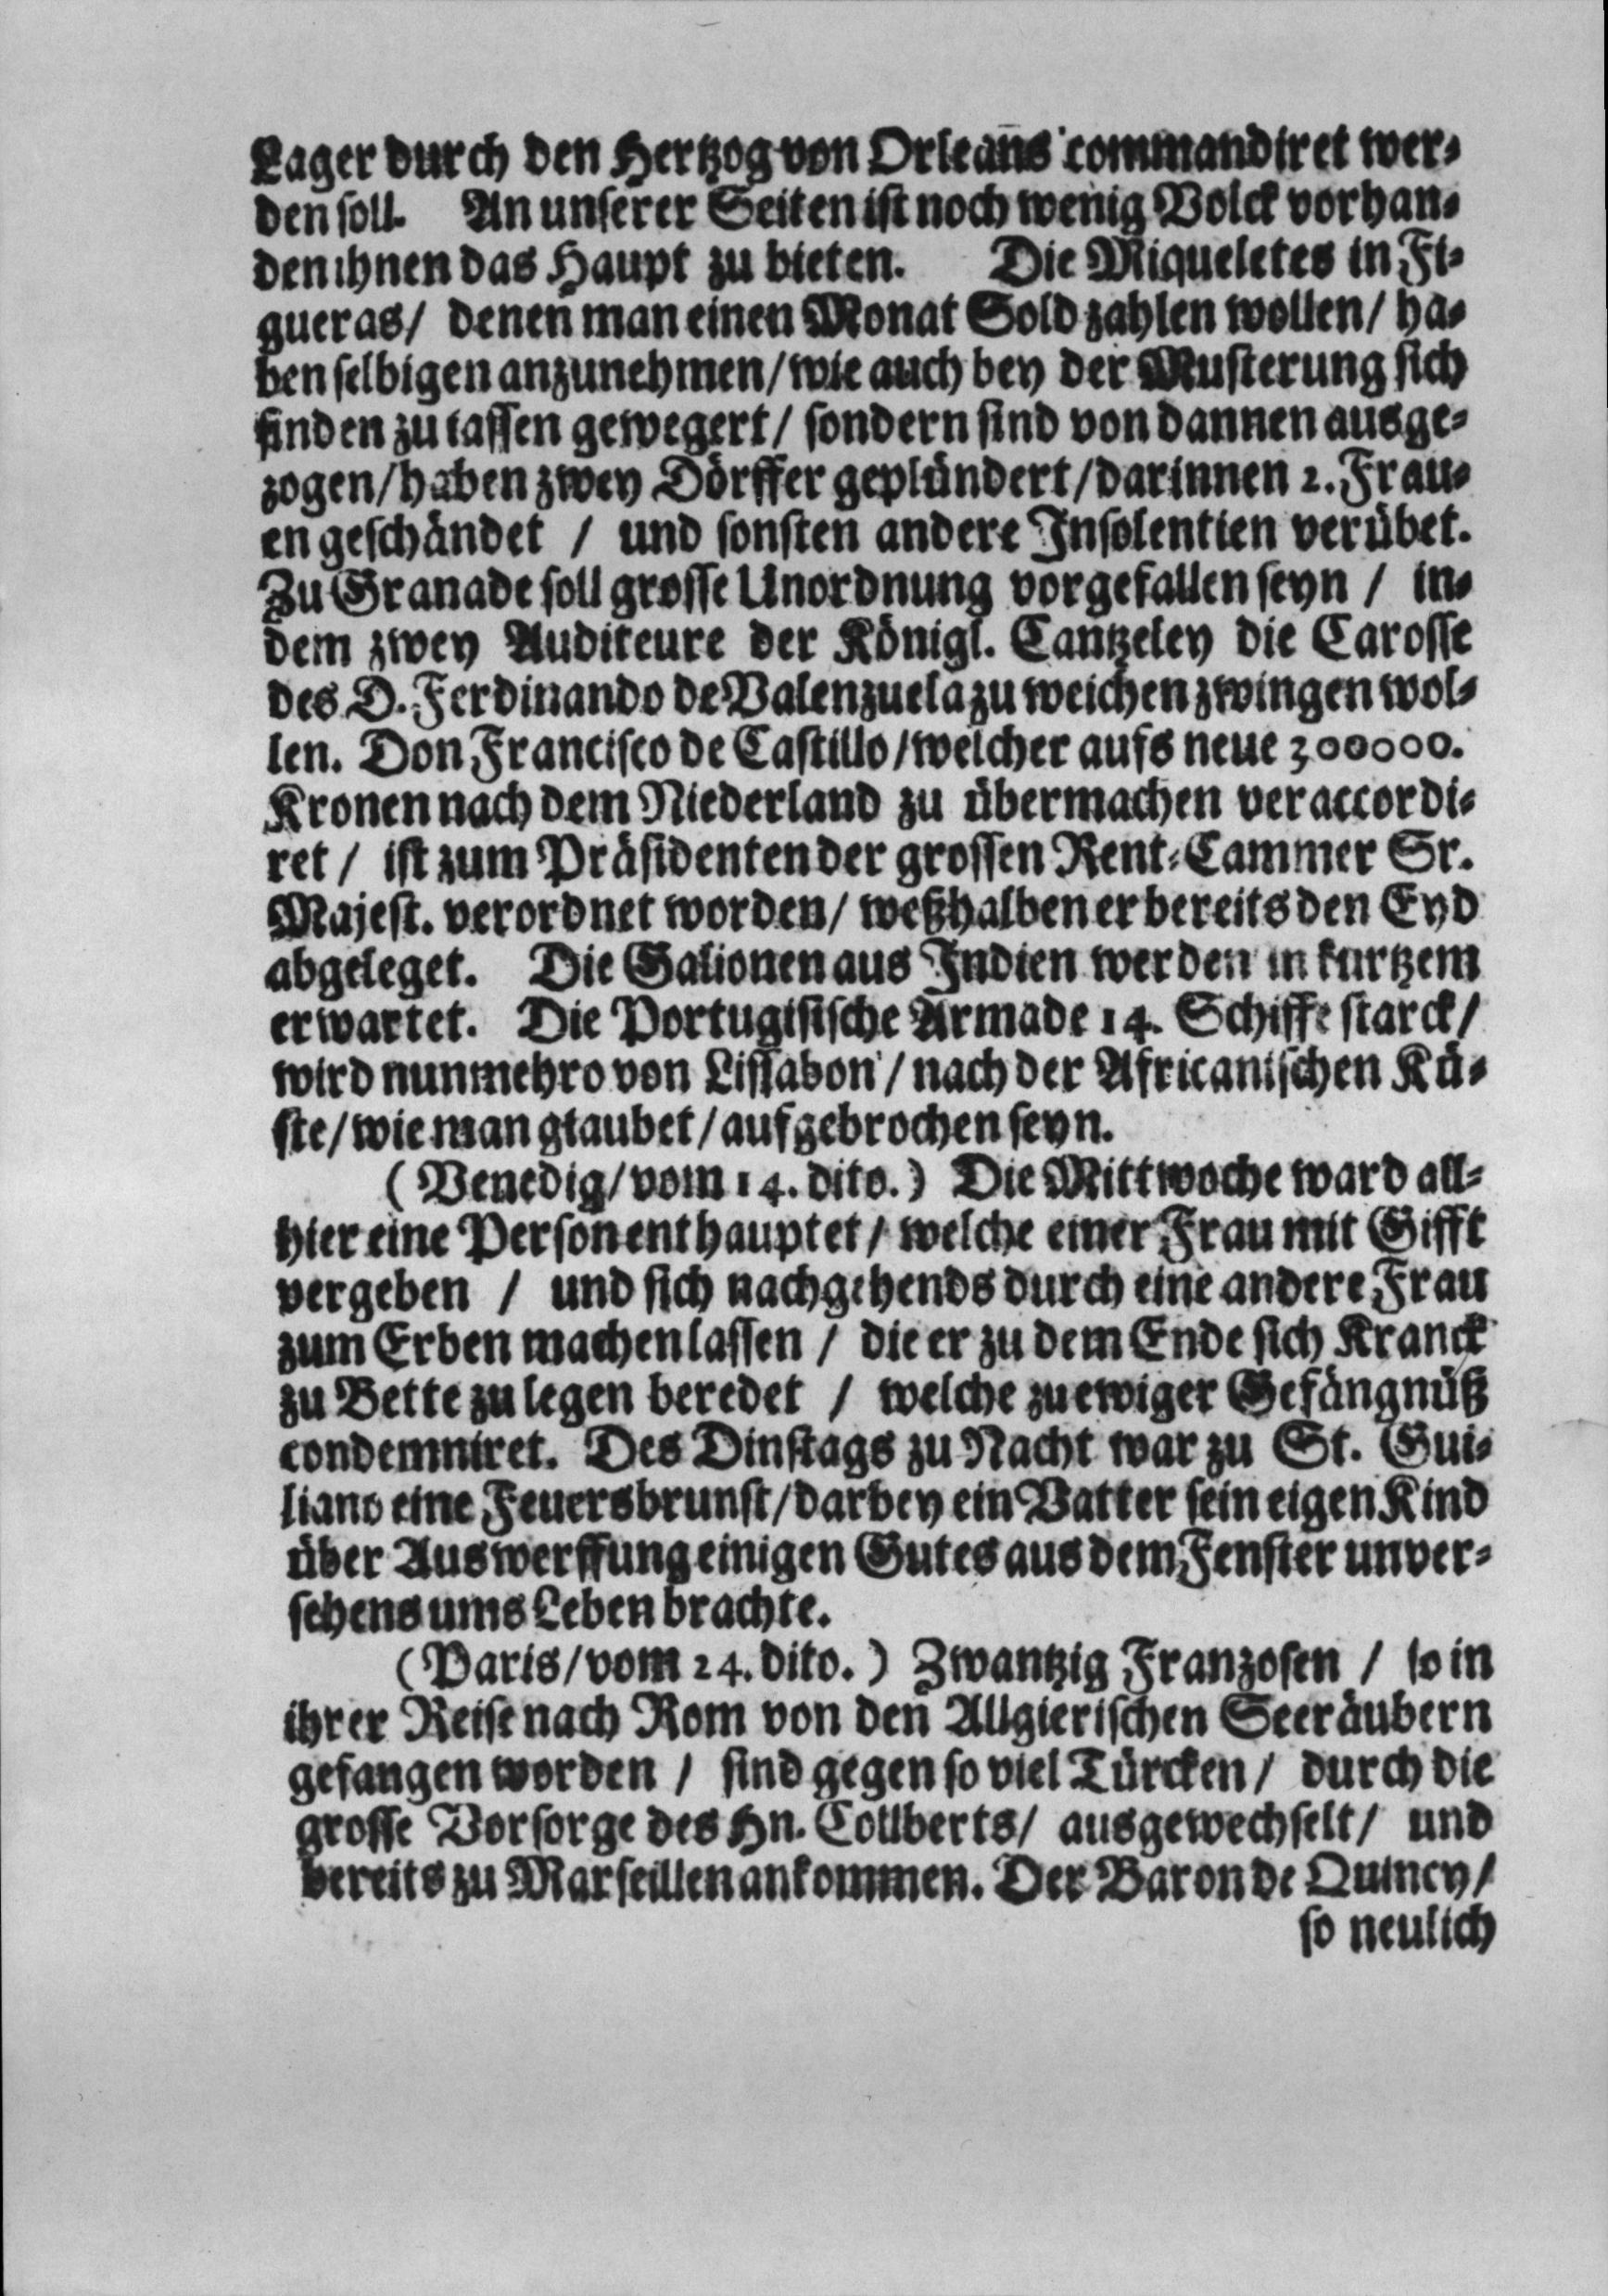 Lager durch den Hertzog von Orleans commandiret wer-
den soll. An unserer Seiten ist noch wenig Volck vorhan-
den ihnen das Haupt zu bieten. Die Miqueletes in Fi-
gueras/ denen man einen Monat Sold zahlen wollen/ ha-
ben selbigen anzunehmen/ wie auch bey der Musterung sich
finden zu lassen gewegert/ sondern sind von dannen ausge-
zogen/ haben zwey Dörffer geplündert/ darinnen 2. Frau-
en geschändet / und sonsten andere Insolentien verübet.
Zu Granade soll grosse Unordnung vorgefallen seyn / in-
dem zwey Auditeure der Königl. Cantzeley die Carosse
des D. Ferdinando de Valenzuela zu weichen zwingen wol-
len. Don Francisco de Castillo/ welcher aufs neue 300000.
Kronen nach dem Niederland zu übermachen veraccordi-
ret / ist zum Präsidenten der grossen Rent-Cammer Sr.
Majest. verordnet worden/ weßhalben er bereits den Eyd
abgeleget. Die Galionen aus Indien werden in kurtzem
erwartet. Die Portugisische Armade 14. Schiffe starck/
wird nunmehro von Lissabon / nach der Africanischen Kü-
ste/ wie man glaubet/ aufgebrochen seyn.
(Venedig/ vom 14. dito.) Die Mittwoche ward all-
hier eine Person enthauptet/ welche einer Frau mit Gifft
vergeben / und sich nachgehends durch eine andere Frau
zum Erben machen lassen / die er zu dem Ende sich Kranck
zu Bette zu legen beredet / welche zu ewiger Gefängnüß
condemniret. Des Dinstags zu Nacht war zu St. Gui-
liano eine Feuersbrunst/ darbey ein Vatter sein eigen Kind
über Auswerffung einigen Gutes aus dem Fenster unver-
sehens ums Leben brachte.
(Paris/ vom 24. dito.) Zwantzig Franzosen / so in
ihrer Reise nach Rom von den Allgierischen Seeräubern
gefangen worden / sind gegen so viel Türcken/ durch die
grosse Vorsorge des Hn. Collberts/ ausgewechselt/ und
bereits zu Marseillen ankommen. Der Baron de Quincy/
so neulich